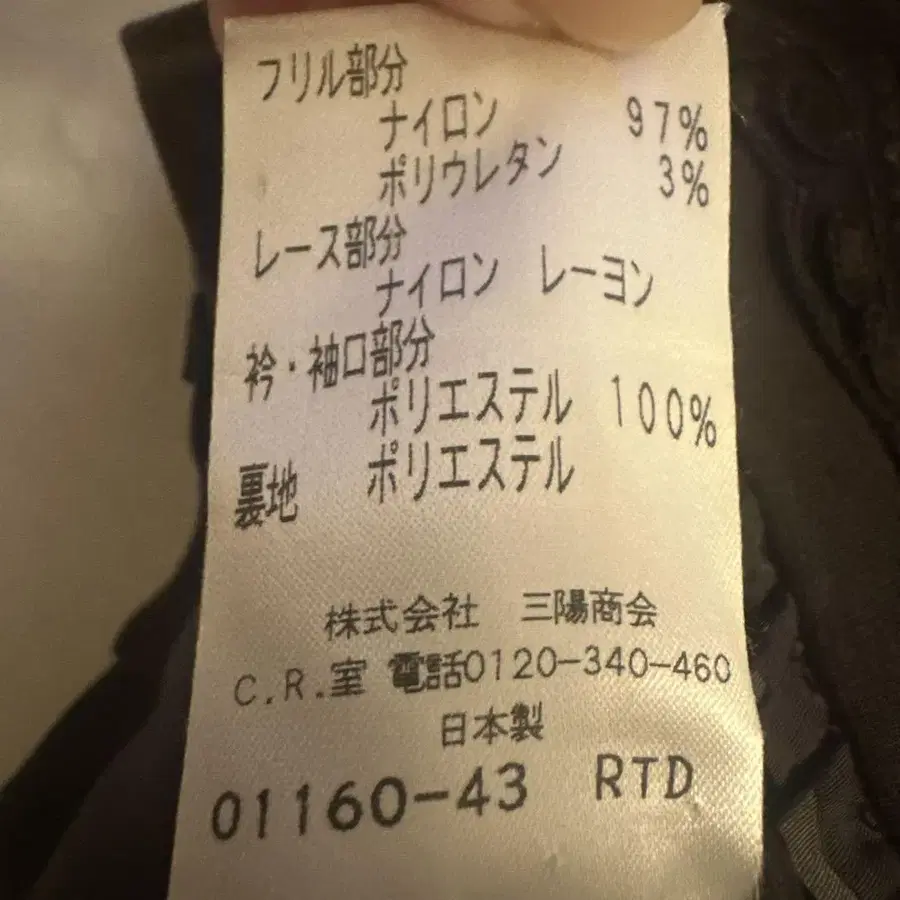 フリル部分
ナイロン 97%
ポリウレタン 3%
レース部分
ナイロン レーヨン
衿・袖口部分
ポリエステル 100%
裏地 ポリエステル
株式会社 三陽商会
C.R.室 電話0120-340-460
日本製
01160-43 RTD